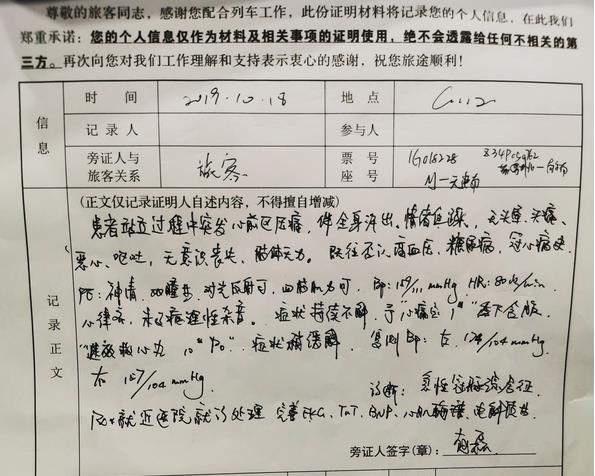 尊敬的旅客同志，感谢您配合列车工作，此份证明材料将记录您的个人信息，在此我们
郑重承诺：您的个人信息仅作为材料及相关事项的证明使用，绝不会透露给任何不相关的第
三方。再次向您对我们工作理解和支持表示衷心的感谢，祝您旅途顺利！
信息
时 间 2019.10.18 地 点 G112
记 录 人 参与人
旁证人与旅客关系 旅客 票 号 座 号 1G018228
记录正文
(正文仅记录证明人自述内容，不得擅自增减)
患者站立过程中突发心前区压痛，伴全身汗出，情绪，无头晕、头痛、
恶心、呕吐，无意识丧失，肢体无力。既往否认高血压，糖尿病，冠心病史
PE：神清，对光反射可，四肢肌力可，BP：159/111 mmHg HR：80次/min
心律齐，未及病理性杂音。症状持续不解，予心痛定1#舌下含服，
"速效救心丸 10# Po" 症状稍缓解，复测BP：左 124/104 mmHg
右 157/104 mmHg
诊断：急性冠脉综合征
就近医院就诊处理 完善EKG、TnT、BNP、心肌酶谱、电解质
旁证人签字(章)：